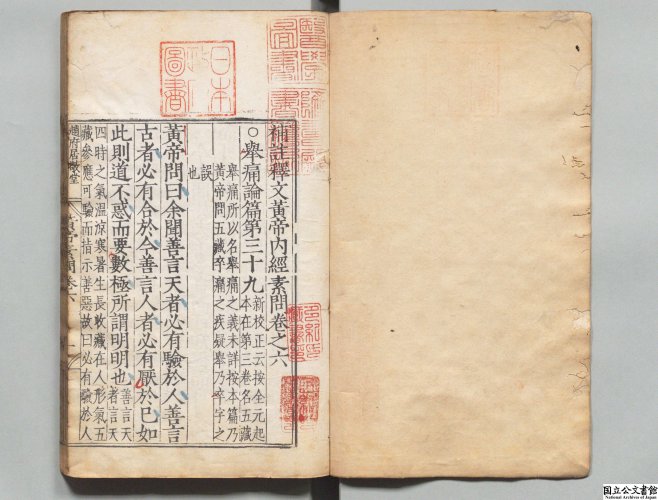 補註釋文黃帝內經素問卷之六
○舉痛論篇第三十九 新校正云按全元起
本在第三卷名五藏
舉痛所以名舉痛之義未詳按本篇乃
黃帝問五藏卒痛之疾疑舉乃卒字之
誤也
黃帝問曰余聞善言天者必有驗於人善言
古者必有合於今善言人者必有厭於已如
此則道不惑而要數極所謂明明也 善言天
者言天
四時之氣溫涼寒暑生長收藏在人形氣五
藏參應可驗而指示善惡故曰必有驗於人
趙府居敬堂
素問卷六
日本
政府
圖書
国立公文書館
National Archives of Japan